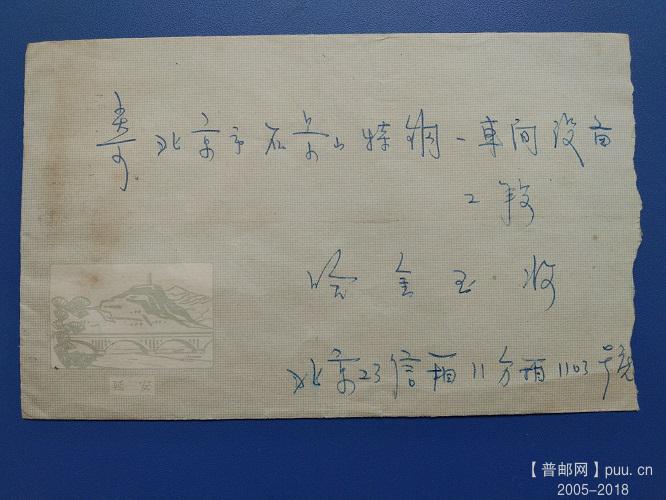 寄 北京市石景山特钢一车间设备
工段
哈金玉收
北京23信箱11分箱1103号
延安
【普邮网】puu.cn
2005-2018